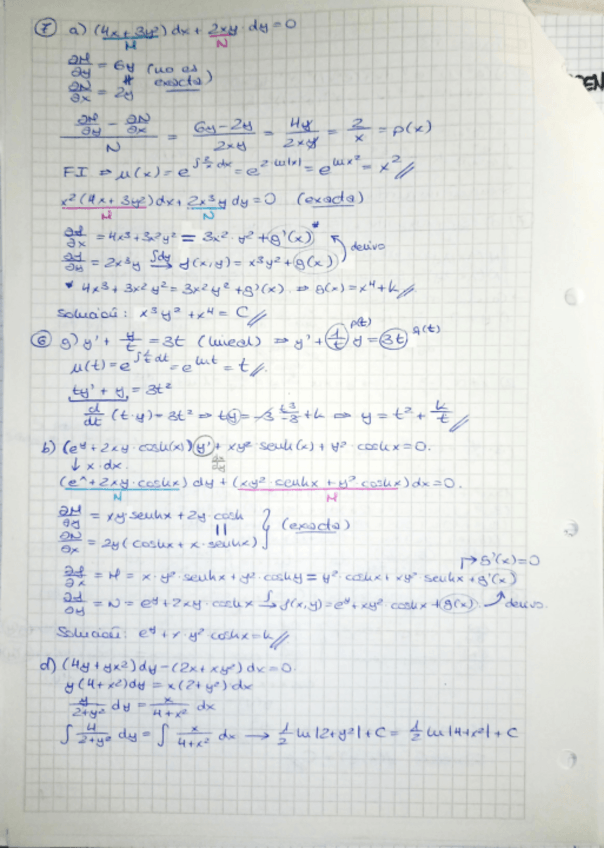 7 a) (4x + 3y²) dx + 2xy · dy = 0
M N
∂M/∂y = 6y (no es
≠ exacta)
∂N/∂x = 2y
(∂M/∂y − ∂N/∂x)/N = (6y − 2y)/2xy = 4y/2xy = 2/x = p(x)
FI ⇒ μ(x) = e^∫2/x dx = e^2 ln|x| = e^ln x² = x² //
x² (4x + 3y²) dx + 2x³y dy = 0 (exacta)
M N
∂f/∂x = 4x³ + 3x²y² = 3x² · y² + g'(x) *
derivo
∂f/∂y = 2x³y ∫dy→ f(x,y) = x³y² + g(x)
* 4x³ + 3x²y² = 3x²y² + g'(x) ⇒ g(x) = x⁴ + k //
Solución: x³y² + x⁴ = C //
6 g) y' + y/t = 3t (lineal) ⇒ y' + (1/t) y = 3t
p(t) q(t)
μ(t) = e^∫1/t dt = e^ln t = t //
ty' + y = 3t²
d/dt (t·y) = 3t² ⇒ ty = 3 t³/3 + k ⇒ y = t² + k/t //
b) (e^y + 2xy · cosh(x)) y' + xy² senh(x) + y² · coshx = 0.
↓ x · dx. dy/dx
(e^y + 2xy · coshx) dy + (xy² · senhx + y² coshx) dx = 0.
N M
∂M/∂y = xy senhx + 2y cosh
|| (exacta)
∂N/∂x = 2y (coshx + x · senhx)
g'(x) = 0
∂f/∂x = M = x · y² · senhx + y² · coshy = y² · coshx + xy² senhx + g'(x)
∂f/∂y = N = e^y + 2xy · coshx ∫→ f(x,y) = e^y + xy² · coshx + g(x). derivo.
Solución: e^y + x · y² coshx = k //
d) (4y + yx²) dy − (2x + xy²) dx = 0.
y (4 + x²) dy = x (2 + y²) dx
y/(2+y²) dy = x/(4+x²) dx
∫ y/(2+y²) dy = ∫ x/(4+x²) dx → 1/2 ln|2+y²| + C = 1/2 ln|4+x²| + C